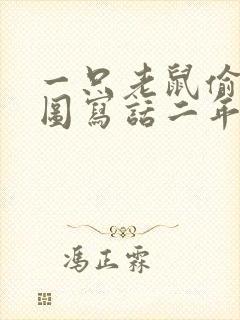 一只老鼠偷
圖寫話二年
馮正霖